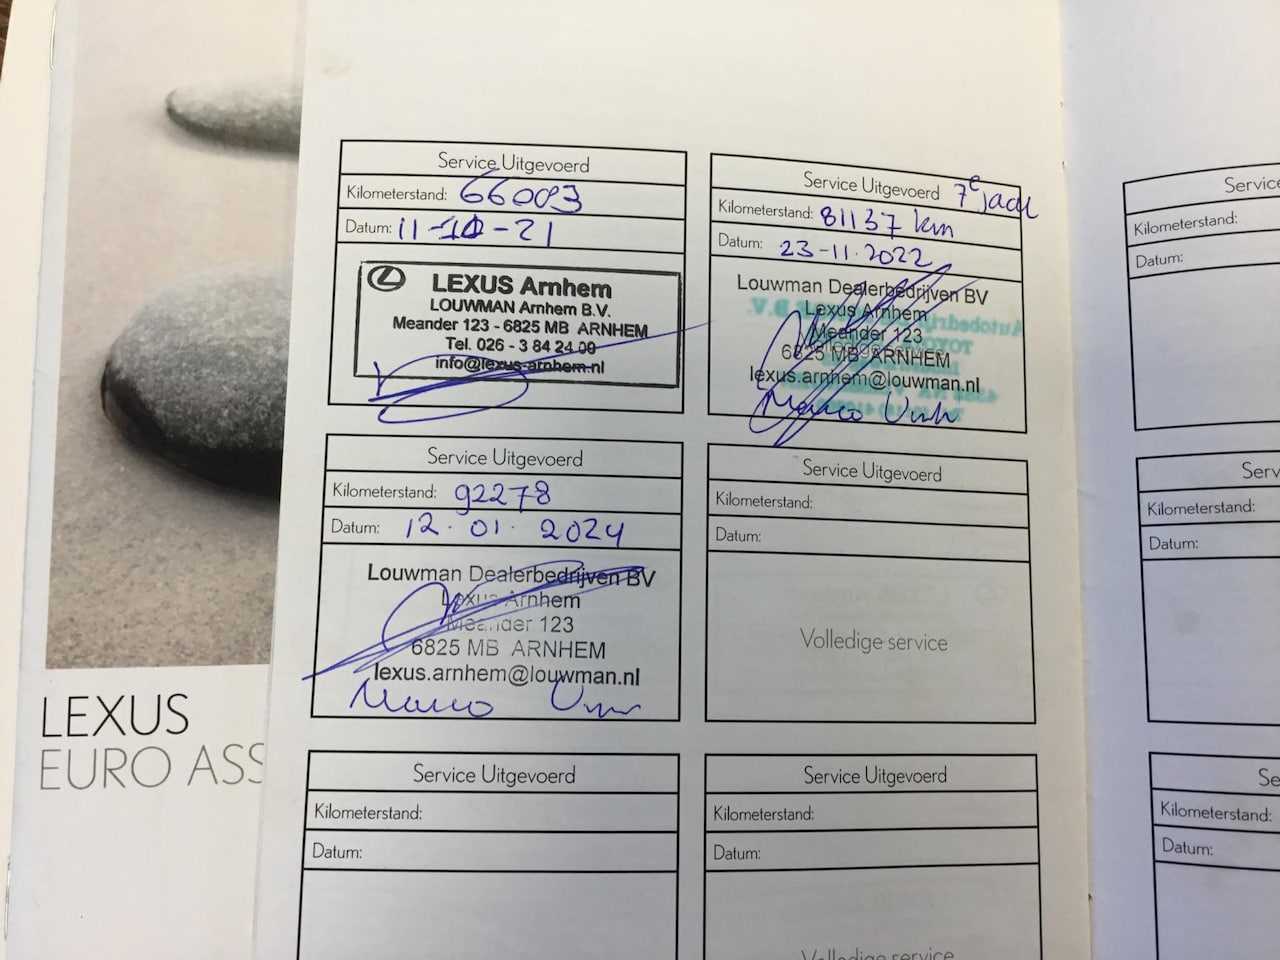 Service Uitgevoerd
Kilometerstand: 66003
Datum: 11-10-21
LEXUS Arnhem
LOUWMAN Arnhem B.V.
Meander 123 - 6825 MB ARNHEM
Tel. 026 - 3 84 24 00
info@lexus-arnhem.nl
Service Uitgevoerd 7e jaar
Kilometerstand: 81137 km
Datum: 23-11-2022
Louwman Dealerbedrijven BV
Lexus Arnhem
Meander 123
6825 MB ARNHEM
lexus.arnhem@louwman.nl
Marco
Service Uitgevoerd
Kilometerstand: 92278
Datum: 12.01.2024
Louwman Dealerbedrijven BV
Lexus Arnhem
Meander 123
6825 MB ARNHEM
lexus.arnhem@louwman.nl
Marco
Service Uitgevoerd
Kilometerstand:
Datum:
Volledige service
Service Uitgevoerd
Kilometerstand:
Datum:
Service Uitgevoerd
Kilometerstand:
Datum:
Volledige service
Service
Kilometerstand:
Datum:
Serv
Kilometerstand:
Datum:
Se
Kilometerstand:
Datum:
LEXUS
EURO ASS